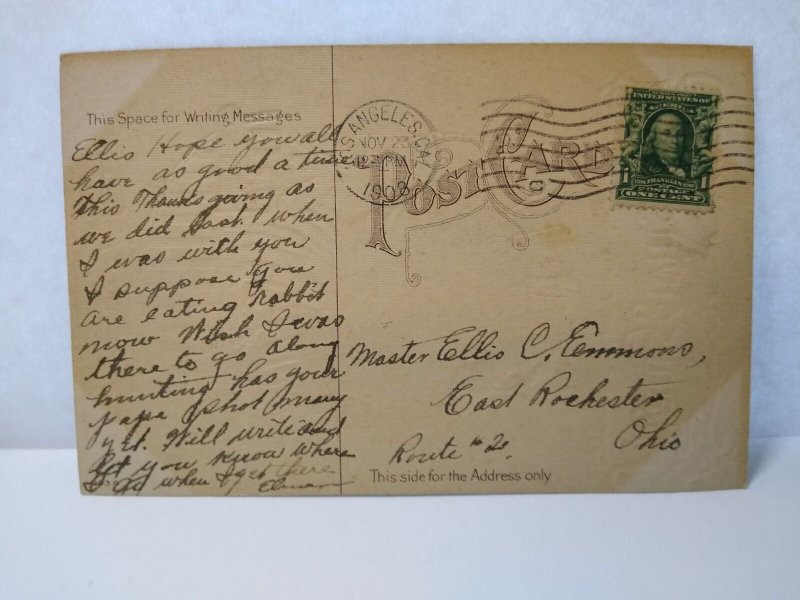 This Space for Writing Messages
Ellis Hope you all
have as good a time
This Thanksgiving as
we did Last when
I was with you
I suppose you
are eating Rabbit
now Wish I was
there to go along
hunting has your
papa shot many
yet. Will write and
let you know where
I go when I get there
S ANGELES, CAL.
NOV 23
12 PM
1908
POST CARD
UNITED STATES OF
FRANKLIN
POSTAGE
1 ONE CENT 1
Master Ellis C. Emmons,
East Rochester
Ohio
Route # 2.
This side for the Address only